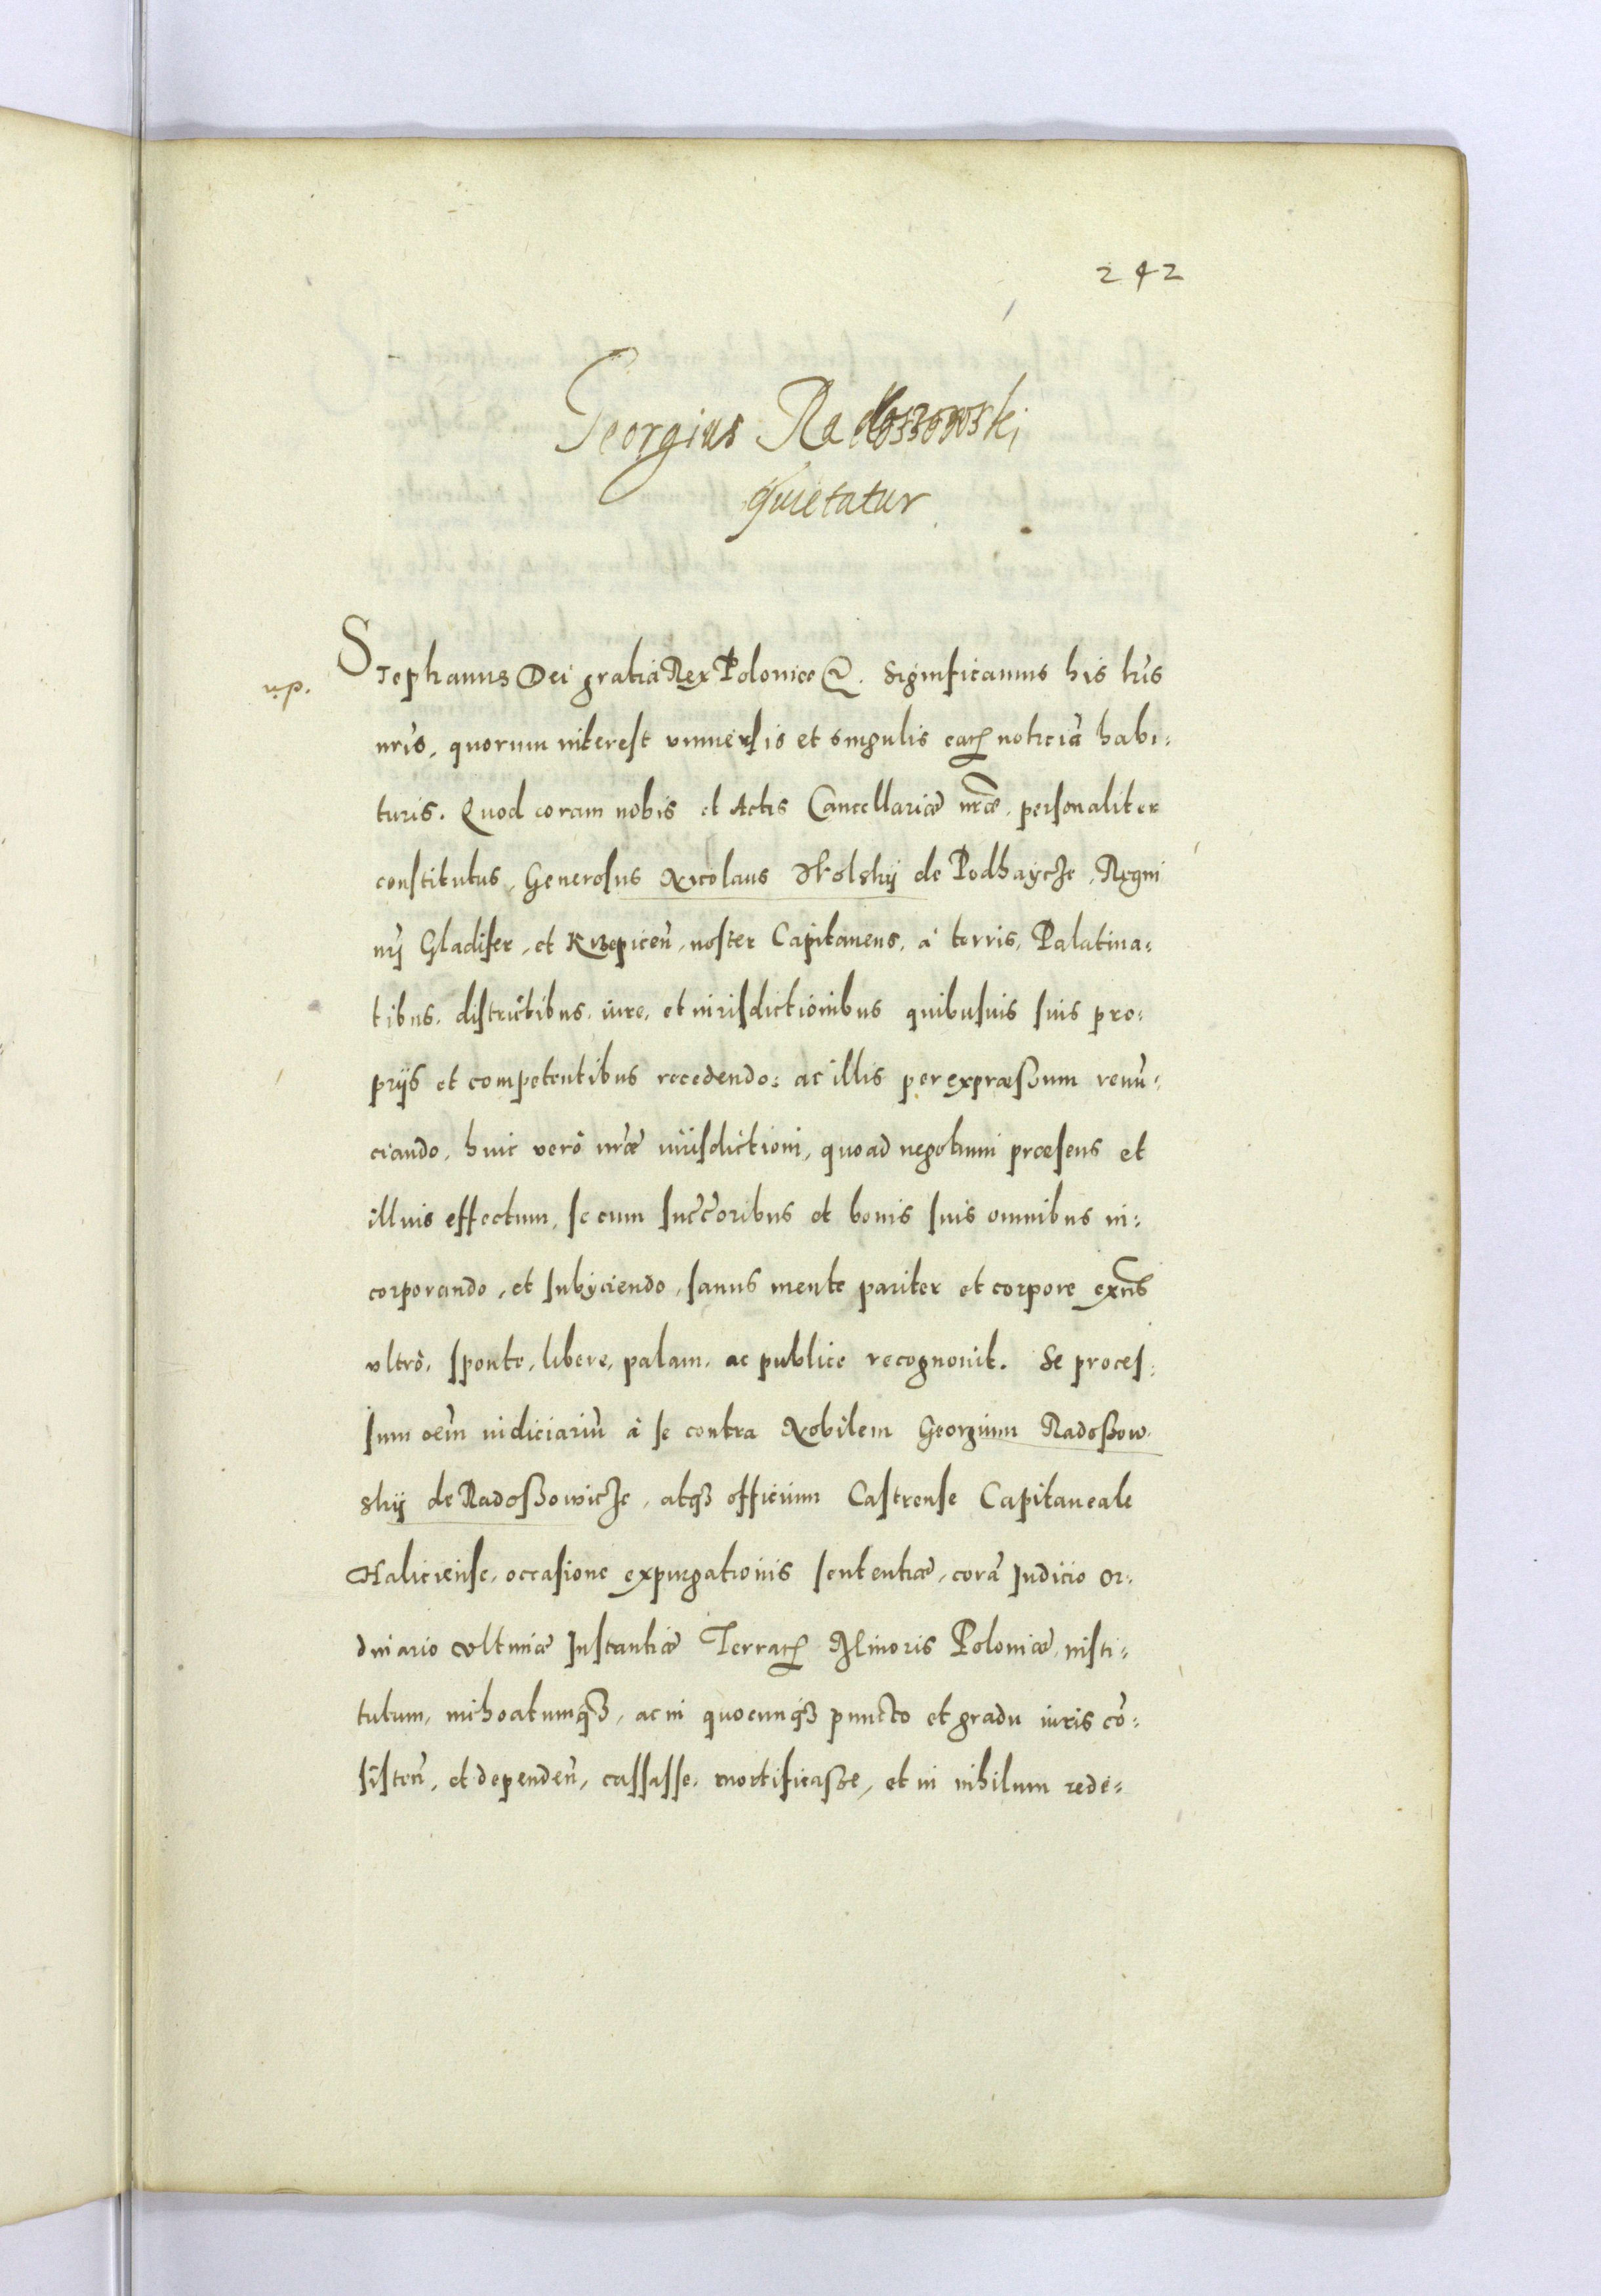 242
Georgius Radoszowski
quietatur
n.p.
Stephanus Dei gratia Rex Poloniæ &. Significamus his lrīs
nrīs, quorum interest vniuersis et singulis earꝝ noticiā habi:
turis. Quod coram nobis et Actis Cancellariæ nrāe, personaliter
constitutus, Generosus Nicolaus Wolsky de Podhaycze, Regni
nrī Gladifer, et Krzepiceñ, noster Capitaneus, à terris, Palatina:
tibus, districtibus, iure, et iurisdictionibus quibusuis suis pro:
prijs et competentibus recedendo: ac illis per expræssum renū:
ciando, huic verò nrāe iurisdictioni, quoad negotium præsens et
illius effectum, se cum succ̄oribus et bonis suis omnibus in:
corporando, et subyciendo, sanus mente pariter et corpore exn̄s
vltrò, sponte, libere, palam, ac publice recognouit. Se proces:
sum oēm iudiciariū à se contra Nobilem Georgium Radoßow
sky de Radoßowicze, atqꝫ officium Castrense Capitaneale
Haliciense, occasione expurgationis sententiæ, corā Judicio or:
dinario vltimæ Instantiæ Terrarꝝ Minoris Poloniæ, insti:
tutum, inchoatumqꝫ, ac in quocunqꝫ puncto et gradu iuris cō:
sisteñ, et dependeñ, cassasse, mortificasse, et in nihilum rede: